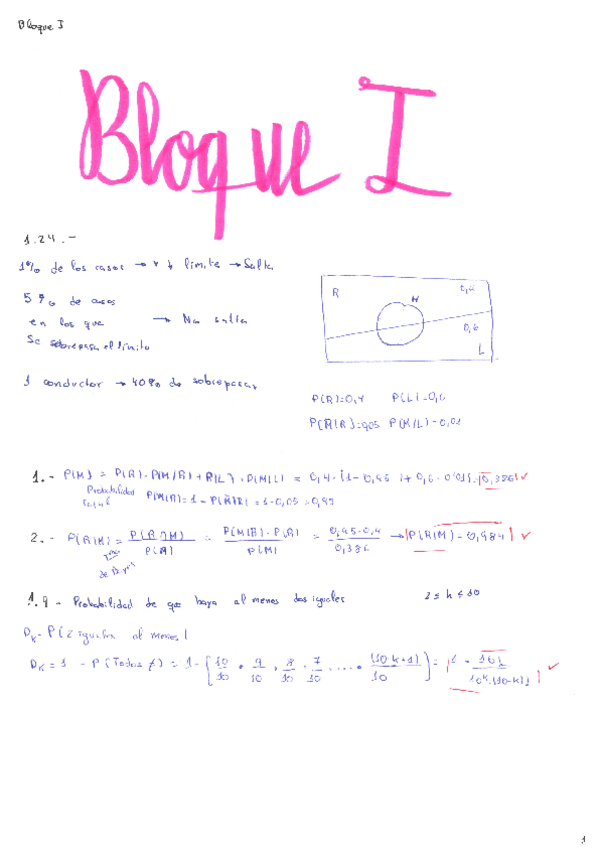 Bloque I
Bloque I
1.24.-
1% de los casos → v ↓ límite → Salta
5% de casos
en los que → No salta
Se sobrepasa el límite
1 conductor → 40% de sobrepasar
R M 0,4
0,6
L
P(R)=0,4 P(L)=0,6
P(M̄|R)=0,05 P(M/L)=0,01
1.- P(M) = P(R)·P(M/R) + P(L)·P(M|L) = 0,4·(1-0,05)+0,6·0'01 = 0,386 ✓
Probabilidad P(M|R)=1-P(M̄|R)=1-0,05=0,95
2.- P(R|M) = P(R∩M) / P(M) = P(M|R)·P(R) / P(M) = 0,95·0,4 / 0,386 → P(R|M)=0,984 ✓
1.9 - Probabilidad de que haya al menos dos iguales 2≤k≤10
Dk = P(2 iguales al menos)
Dk = 1 - P(Todos ≠) = 1-[10/10 · 9/10 · 8/10 · 7/10 · .... · (10-k+1)/10] = 1 - 10! / 10^k·(10-k)! ✓
1